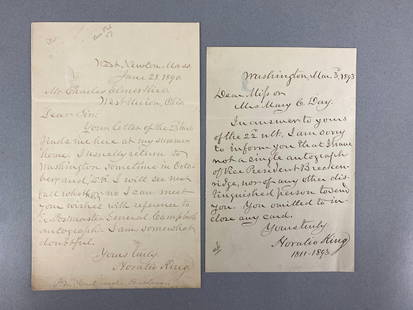 West Newton, Mass.
June 28, 1890.
Mr. Charles
West Milton, Ohio
Dear Sir:
Your letter of the
finds me here at my summer
home. I usually return to
Washington sometime in Octo-
ber and I will see next
fall whether or no I can meet
your wishes with reference to
Postmaster General Campbell's
autograph. I am somewhat
doubtful.
Yours truly,
Horatio King
Washington, Mar. 3, 1893
Dear Miss or
Mrs Mary C. Day.
In answer to yours
of the 22d ult. I am sorry
to inform you that I have
not a single autograph
of Vice President Brecken-
ridge, nor of any other dis-
tinguished person to send
you. You omitted to in-
close any card.
Yours truly
Horatio King
1811-1893